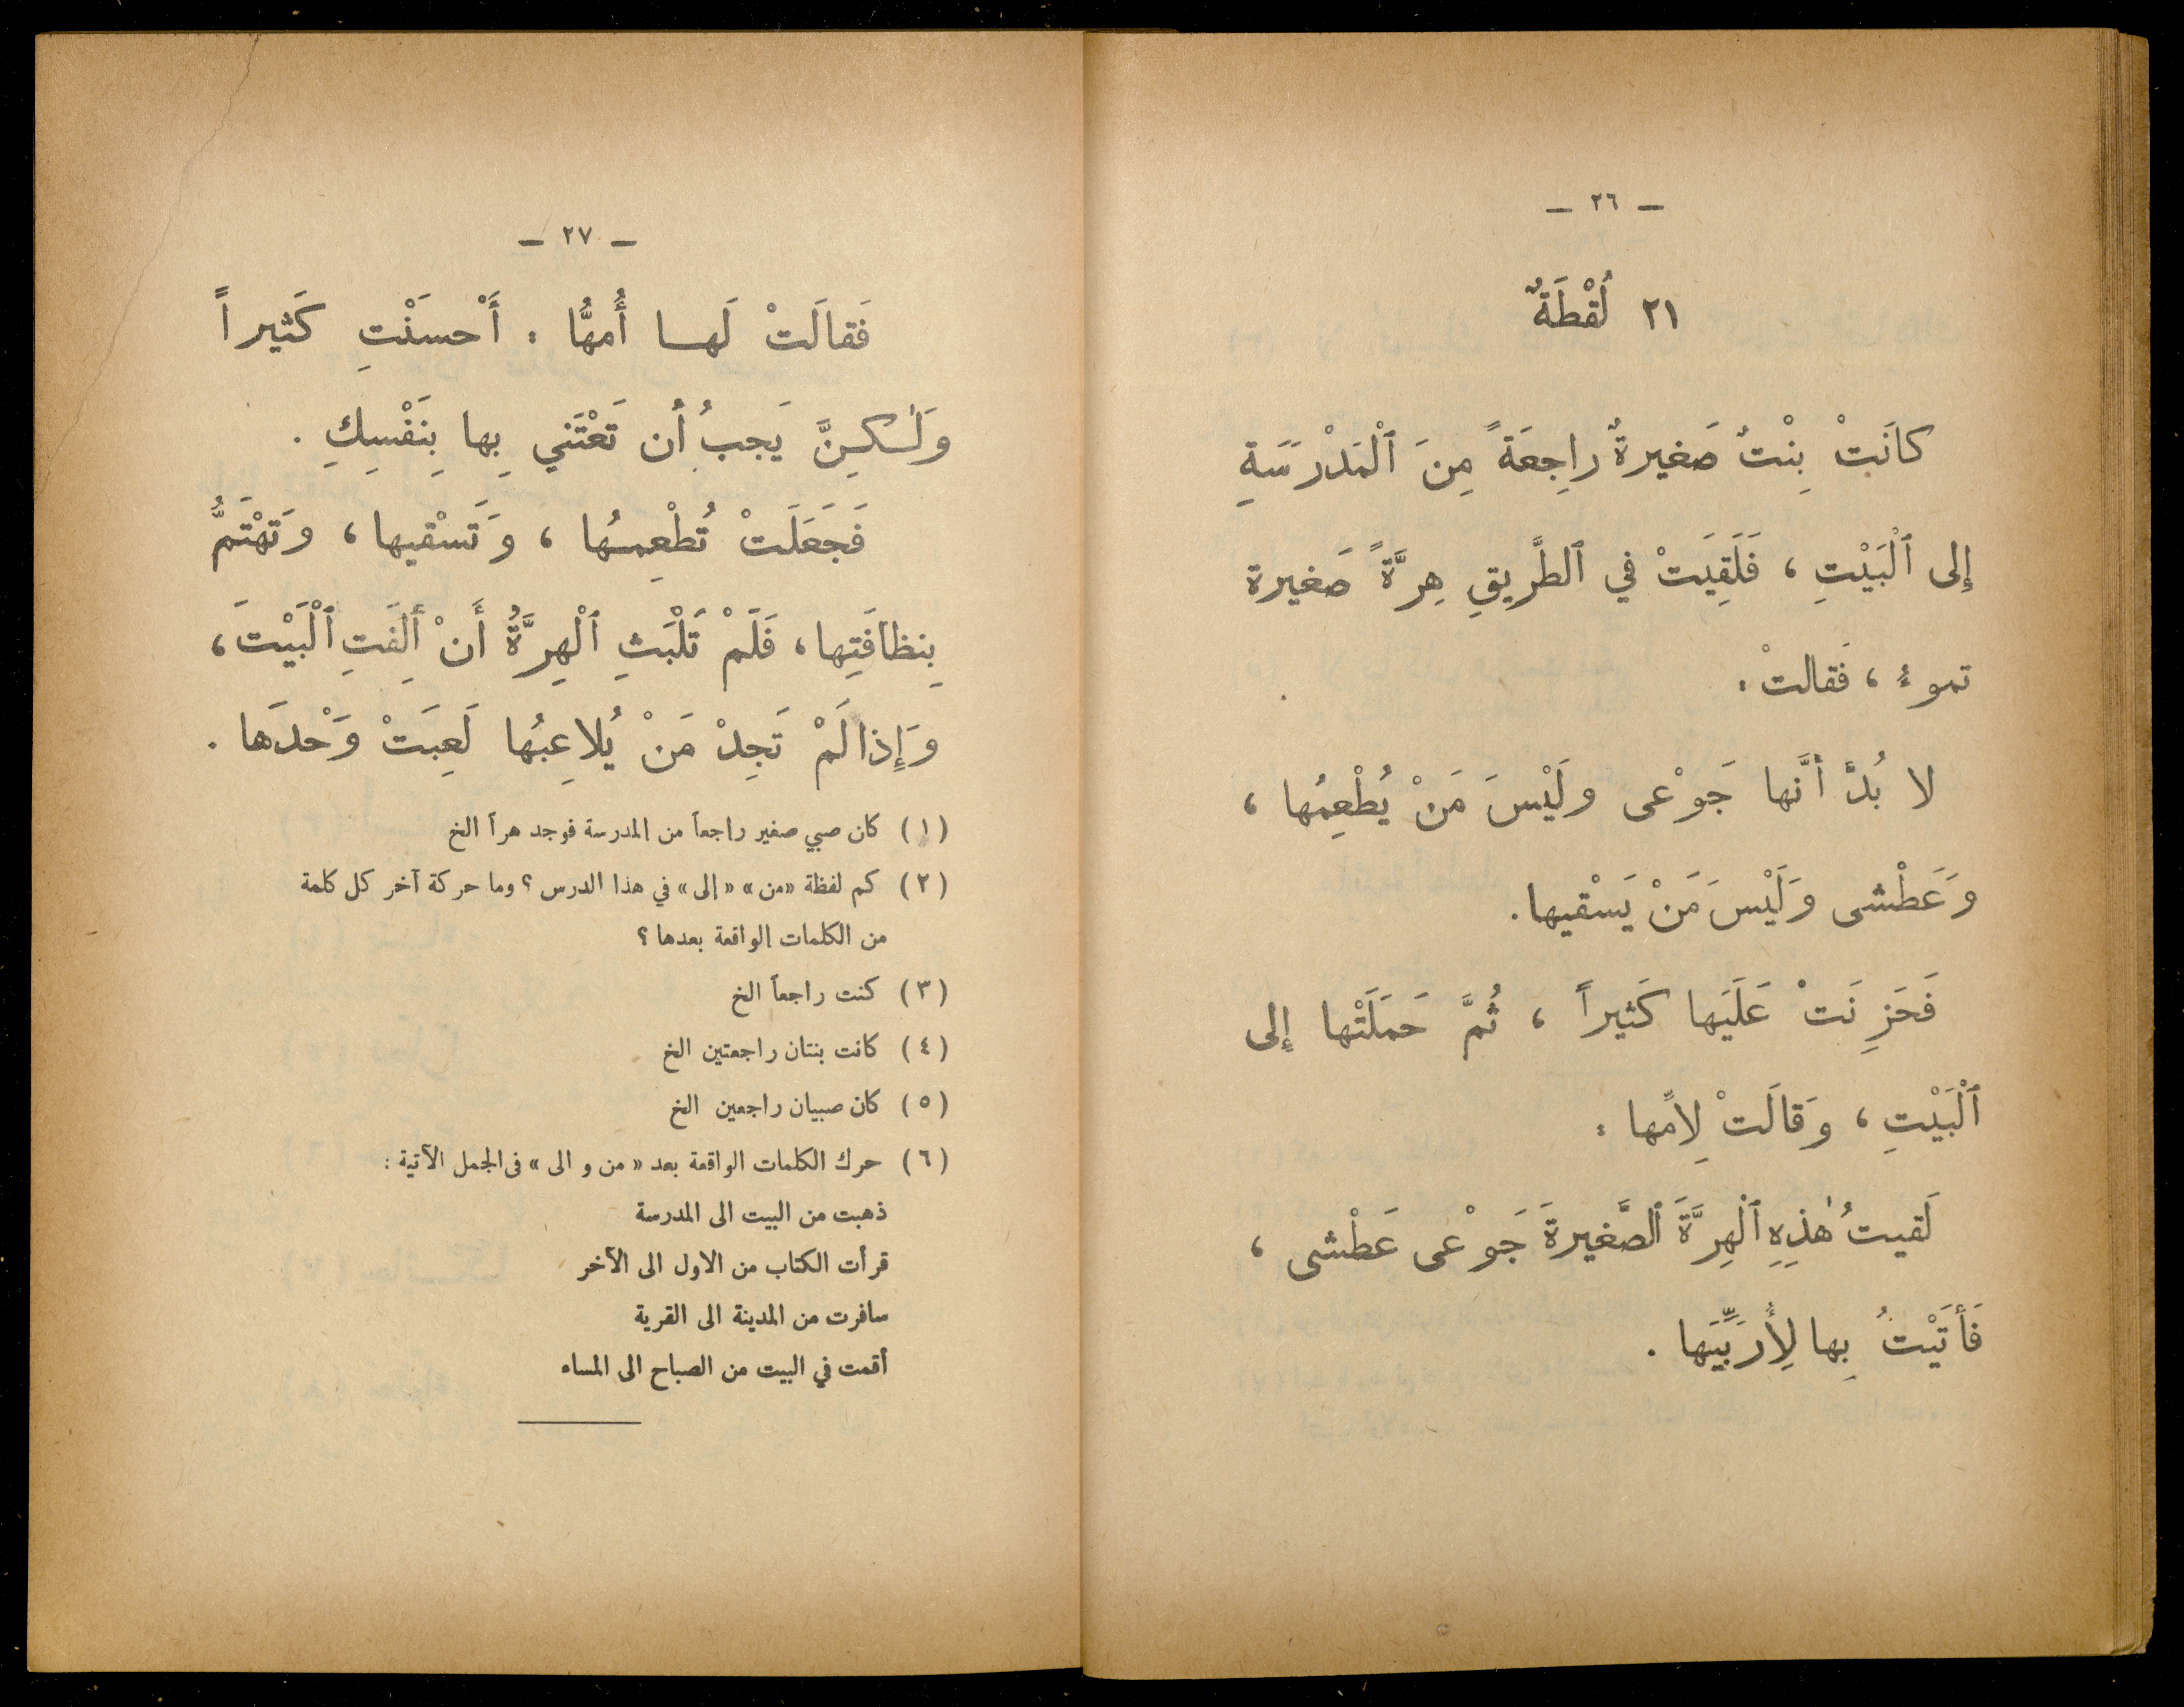 — ٢٦ —
٢١ لُقْطَةٌ
كانَتْ بِنْتٌ صَغيرةٌ راجِعَةً مِنَ ٱلْمَدْرَسَةِ
إِلى ٱلْبَيْتِ ، فَلَقِيَتْ في ٱلطَّرِيقِ هِرَّةً صَغيرة
تموءُ ، فَقالتْ :
لا بُدَّ أنَّها جَوْعى ولَيْسَ مَنْ يُطْعِمُها ،
وَعَطْشى وَلَيْسَ مَنْ يَسْقيها .
فَحَزِنَتْ عَلَيَها كَثيراً ، ثُمَّ حَمَلَتْها إلى
ٱلْبَيْتِ ، وَقالَتْ لِامِّها :
لَقيتُ هٰذِهِ ٱلْهِرَّةَ ٱلصَّغيرةَ جَوْعى عَطْشى ،
فَأتَيْتُ بِها لِأُرَبِّيَها .
— ٢٧ —
فَقالَتْ لَهـا أُمهُّا : أَحْسَنْتِ كَثيراً
وَلٰـكـِنَّ يَجبُ أن تَعْتَني بِها بِنَفْسِكِ .
فَجَعَلَتْ تُطْعِمـُها ، وَتَسْقيها ، وَتَهْتَمُّ
بِنظافَتِها ، فَلَمْ تَلْبَثِ ٱلْهِرَّةُ أَنْ ألِفَتِ ٱلْبَيْتَ ،
وَإِذا لَمْ تَجِدْ مَنْ يُلاعِبُها لَعِبَتْ وَحْدَها .
(١) كان صبي صغير راجعاً من المدرسة فوجد هراً الخ
(٢) كم لفظة «من» «إلى» في هذا الدرس ؟ وما حركة آخر كل كلمة
من الكلمات الواقعة بعدها ؟
(٣) كنت راجعاً الخ
(٤) كانت بنتان راجعتين الخ
(٥) كان صبيان راجعين الخ
(٦) حرك الكلمات الواقعة بعد « من و الى » فى الجمل الآتية :
ذهبت من البيت الى المدرسة
قرأت الكتاب من الاول الى الآخر
سافرت من المدينة الى القرية
أقمت في البيت من الصباح الى المساء